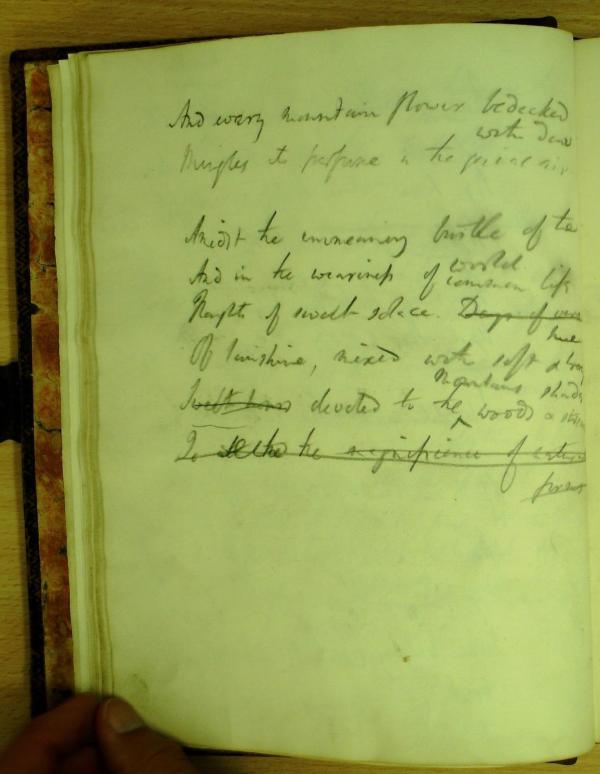 And every mountain flower bedecked
with dew
Mingles its perfume in the genial air.
Amidst the unmeaning bustle of
And in the weariness of common life
world
Thoughts of sweet solace. Days of
Of sunshine, mixed with soft
Mountains shade
Sweet hours devoted to the woods &
To the the magnificence of nature
forms